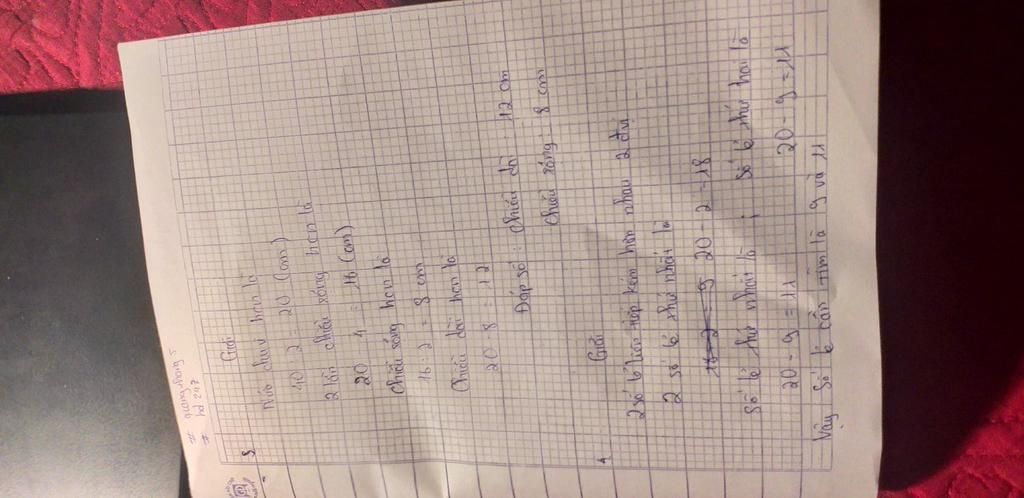 # quang.hong 5
# hd 247
Giải
3
Nửa chu vi hcn là
40 : 2 = 20 (cm)
2 lần chiều rộng hcn là
20 - 4 = 16 (cm)
Chiều rộng hcn là
16 : 2 = 8 cm
Chiều dài hcn là
20 - 8 = 12
Đáp số : chiều dài : 12 cm
Chiều rộng : 8 cm
4
Giải
2 số lẻ liên tiếp kém hơn nhau 2 đvị
2 số lẻ thứ nhất là
20 - 2 = 18
Số lẻ thứ nhất là ; số lẻ thứ hai là
20 - 9 = 11 20 - 9 = 11
Vậy số lẻ cần tìm là 9 và 11